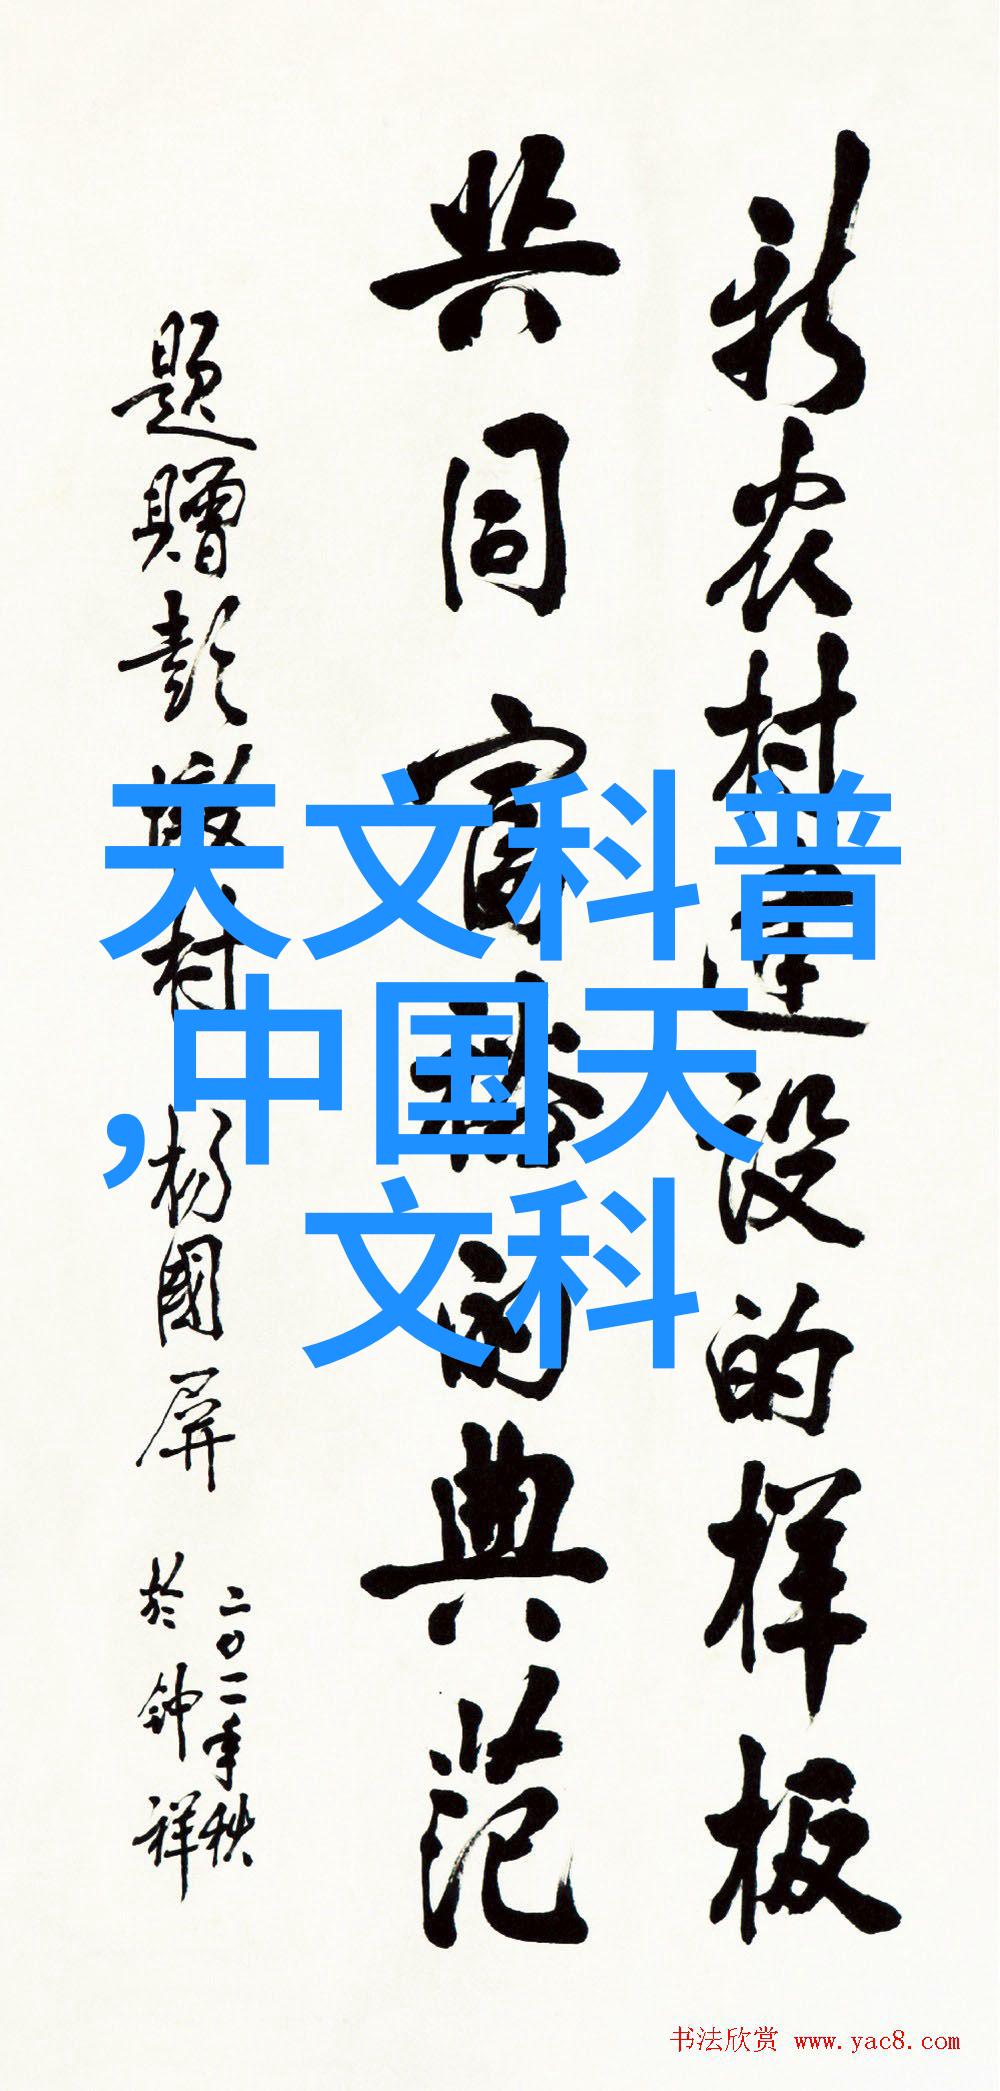 新农村建设的样板
共同富裕的典范
题赠彭墩村 杨国屏
二〇一一年秋
於钟祥
天文科普
,中国天
文科
书法欣赏 www.yac8.com